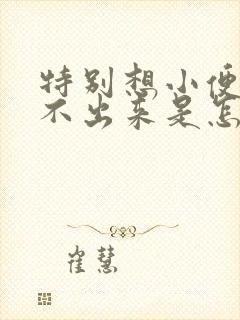 特别想小便
不出来是怎
崔慧